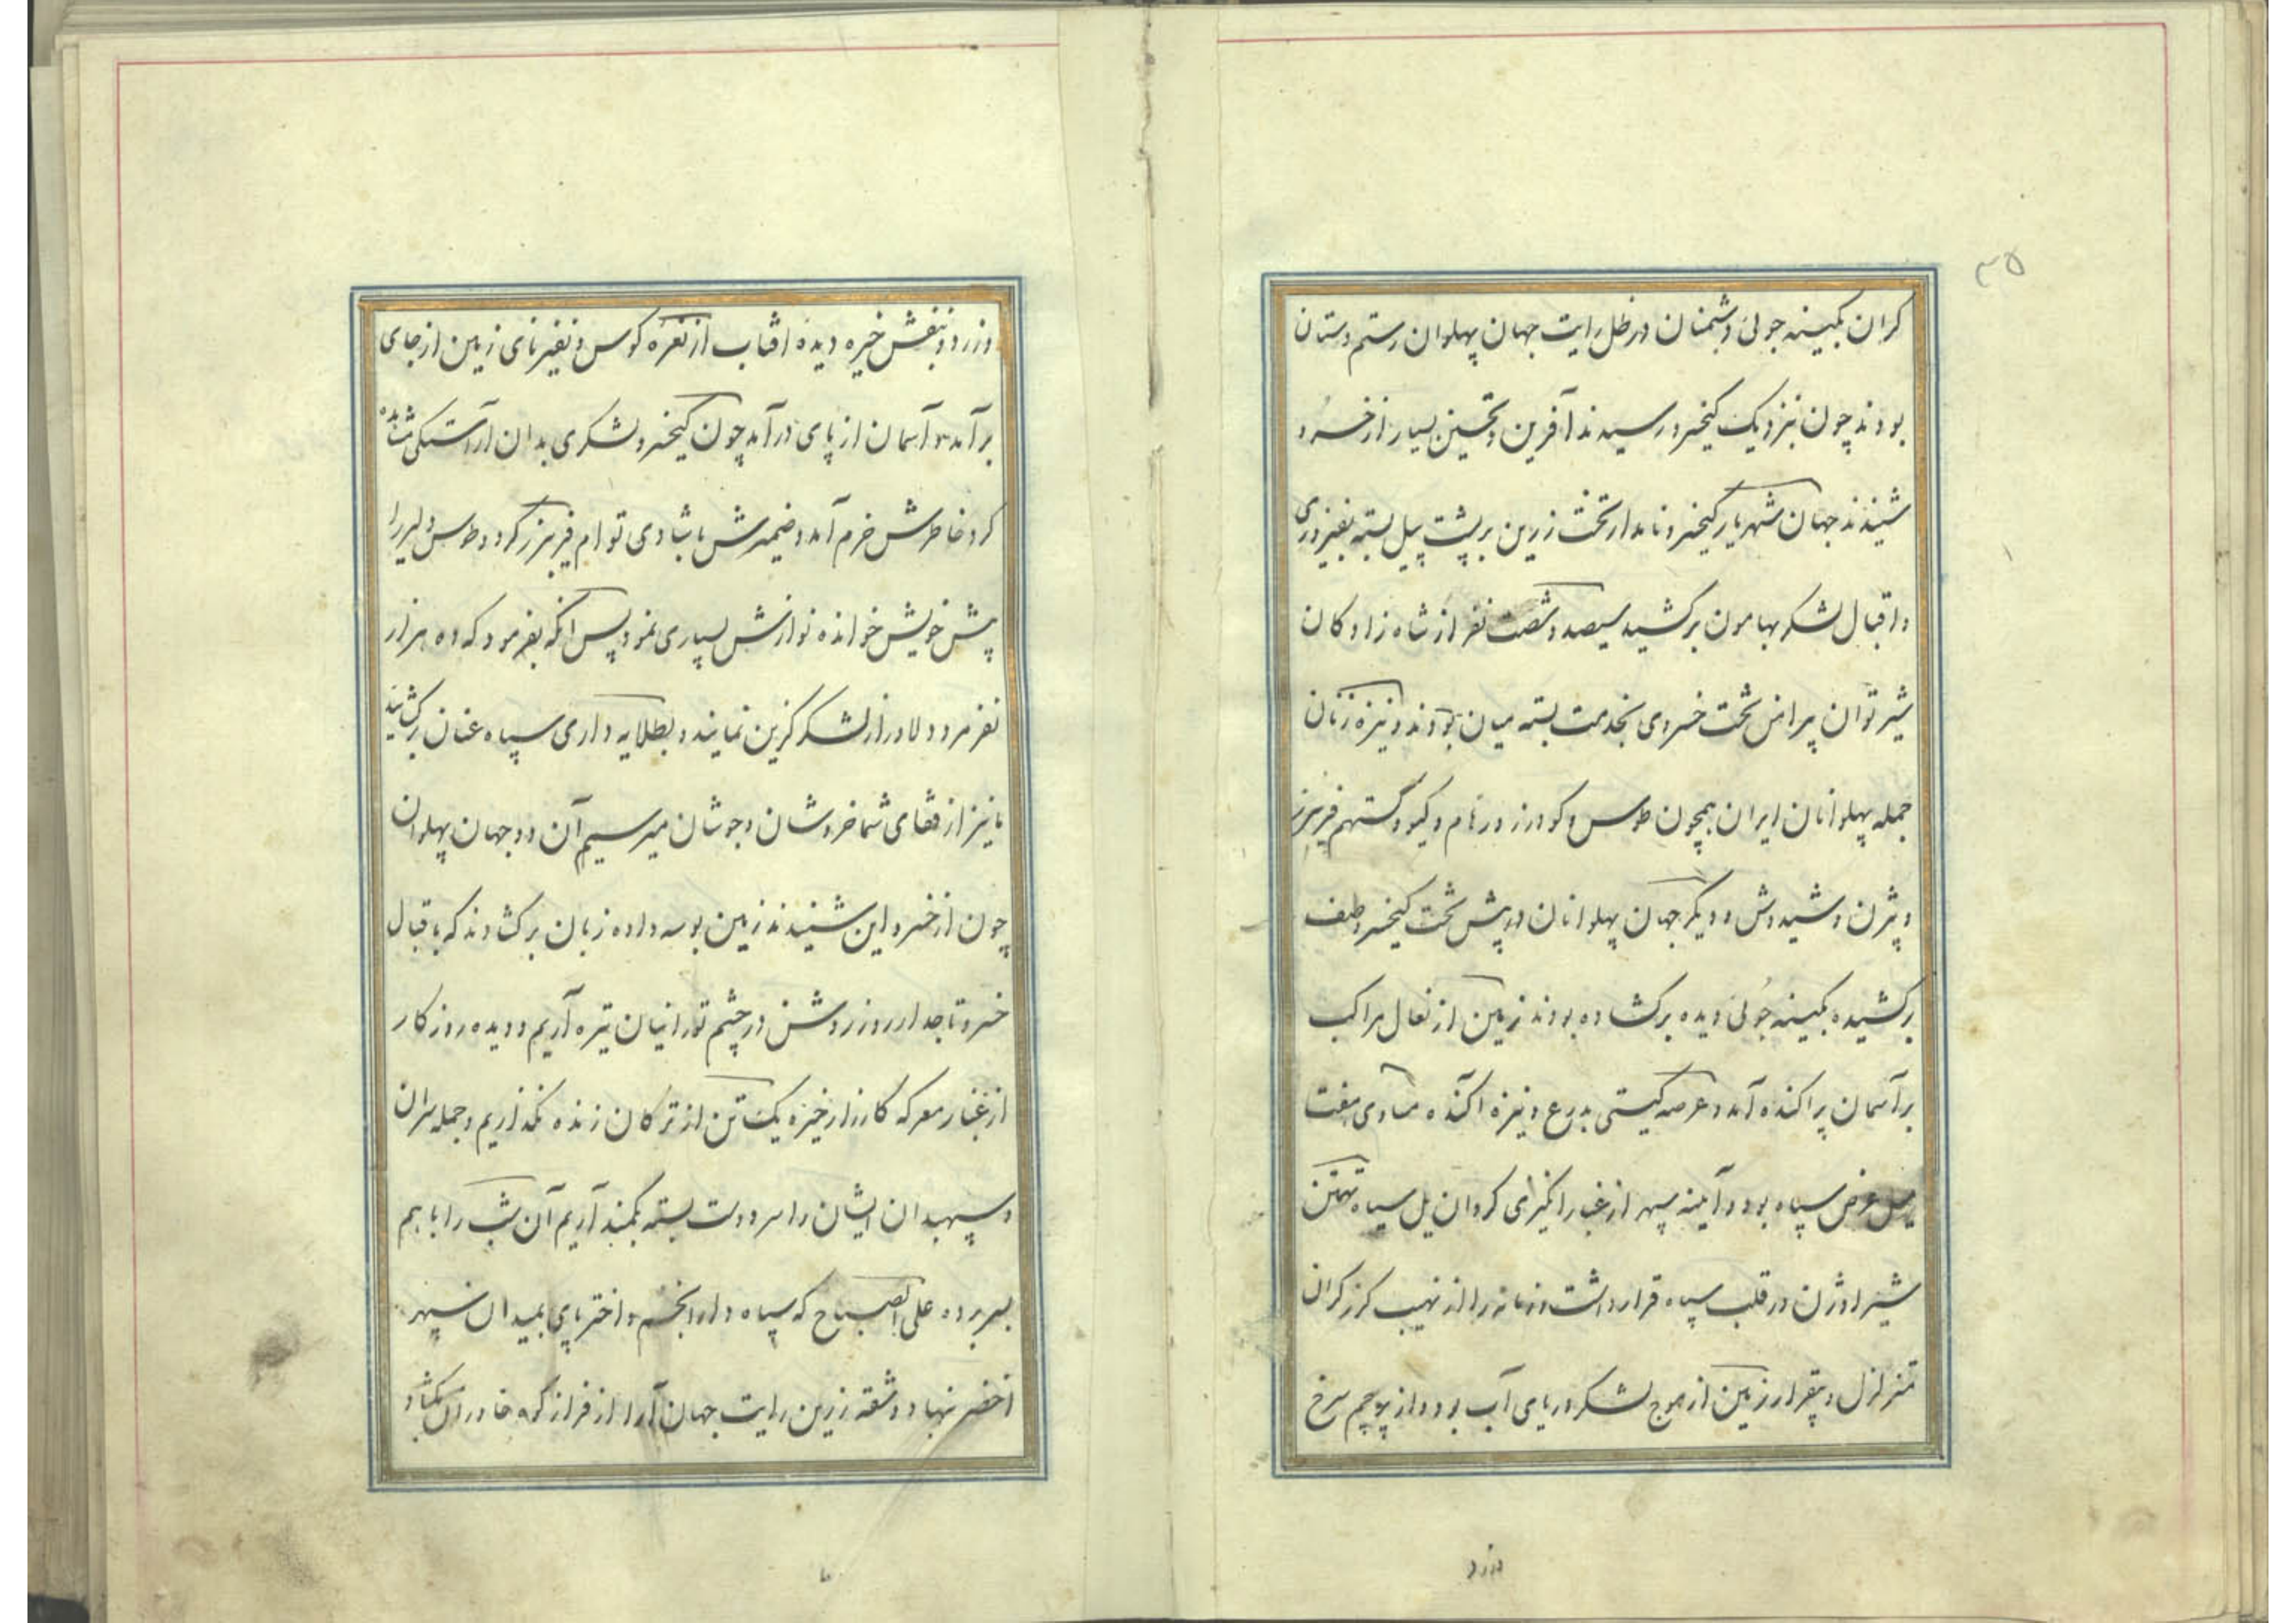 ۳۵
کران بکینه جوئی دشمنان در ظل رایت جهان پهلوان رستم دستان
بودند چون بنزدیک کیخسرو رسیدند آفرین و تحسین بسیار از خسرو
شنیدند جهان شهریار کیخسرو نامدار تخت زرین بر پشت پیل بسته بفیروزی
و اقبال لشکر بهامون برکشید سیصد و شصت نفر از شاه زادکان
شیر توان پیرامن تخت خسروی بخدمت بسته میان بودند و نیزه زنان
جمله پهلوانان ایران همچون طوس و کودرز و رهام و کیو و گستهم فریبرز
و بیژن و شیدوش و دیگر جهان پهلوانان در پیش تخت کیخسرو صف
برکشیده بکینه جوئی دیده برکشاده بودند زمین از نعال مراکب
بر آسمان پراکنده آمد و عرصه کیتی بدرع و نیزه آکنده مساوی هفت
میل عرض سپاه بود و آینه سپهر از غبار انگیزی کردان یل سیاه تهمتن
شیر اوژن در قلب سپاه قرار داشت و زمانه را از نهیب کرز کران
متزلزل و بیقرار زمین از موج لشکر دریای آب بود و از پرچم سرخ
و زرد
و زرد و بنفش خیره دیده آفتاب از نعره کوس و نفیر نای زمین از جای
برآمد و آسمان از پای درآمد چون کیخسرو لشکری بدان آراستکی مشاهده
کرد خاطرش خرم آمد و ضمیرش با شادی توام فریبرز کرد و طوس دلیر را
پیش خویش خوانده نوازش بسیاری نمود پس آنکه بفرمود که ده هزار
نفر مرد دلاور از لشکر گزین نمایند و بطلایه داری سپاه عنان برکشایند
ما نیز از قفای شما خروشان و جوشان میرسیم آن دو جهان پهلوان
چون از خسرو این شنیدند زمین بوسه داده زبان برکشادند که باقبال
خسرو تاجدار روز روشن در چشم تورانیان تیره آریم و دیده روزکار
از غبار معرکه کارزار خیره یک تن از ترکان زنده نکذاریم و جمله سران
و سپهبدان ایشان را سر و دست بسته بکمند آریم آن شب را با هم
بسر برده علی الصباح که سپاه دار انجم و اختر پای بمیدان سپهر
اخضر نهاد و شقه زرین رایت جهان آرا از فراز کوه خاوران بکشاد